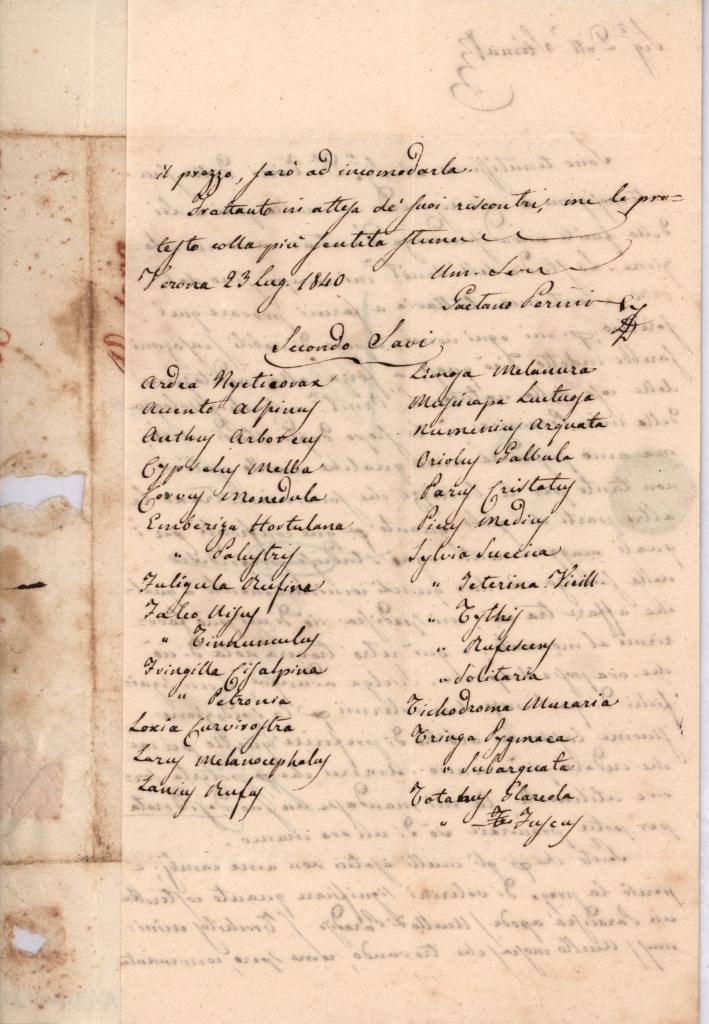 il prezzo, sarò ad incomodarla.
Trattanto in attesa de' suoi riscontri, me le pro=
testo colla più sentita stima
Verona 23 Lug. 1840
Um. Serv
Gaetano Perini
Secondo Savi
Ardea Nycticorax
Accento Alpinus
Anthus Arboreus
Cypselus Melba
Corvus Monedula
Emberiza Hortulana
" Palustris
Fuligula Rufina
Falco Nisus
" Tinnunculus
Fringilla Cisalpina
" Petronia
Loxia Curvirostra
Larus Melanocephalus
Lanius Rufus
Limosa Melanura
Muscicapa Luctuosa
Numenius Arquata
Oriolus Galbula
Parus Cristatus
Picus Medius
Sylvia Suecica
" Icterina Vieill.
" Tythis
" Rufescens
" Solitaria
Tichodroma Muraria
Tringa Pygmaea
" Subarquata
Totanus Glareola
" Fuscus